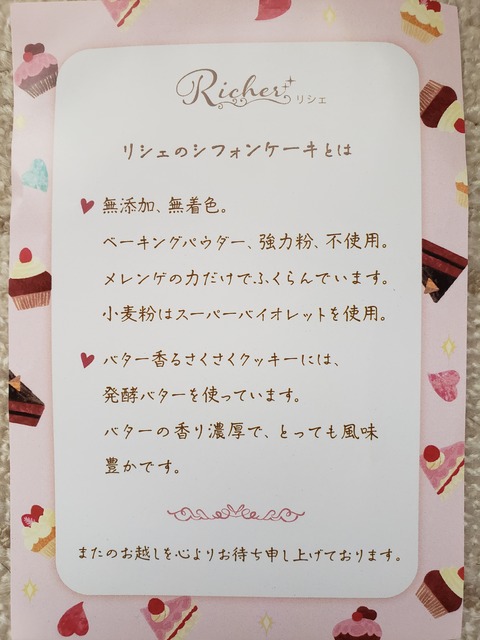 Richer リシェ
リシェのシフォンケーキとは
無添加、無着色。
ベーキングパウダー、強力粉、不使用。
メレンゲの力だけでふくらんでいます。
小麦粉はスーパーバイオレットを使用。
バター香るさくさくクッキーには、
発酵バターを使っています。
バターの香り濃厚で、とっても風味
豊かです。
またのお越しを心よりお待ち申し上げております。